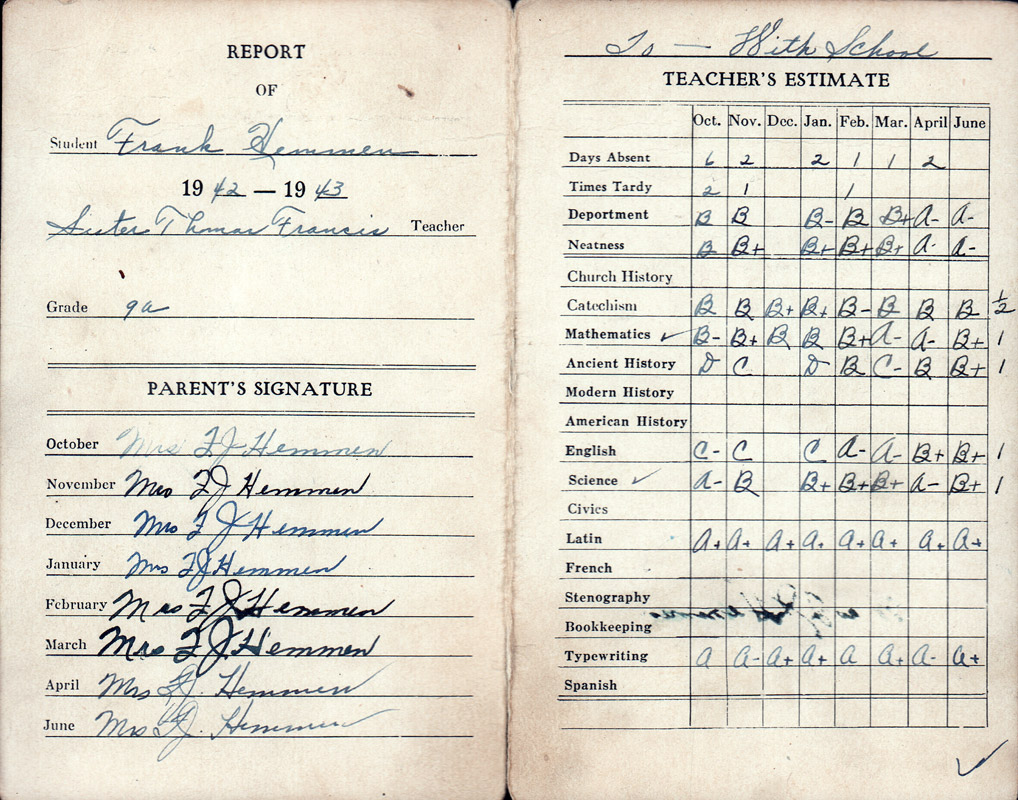 REPORT
OF
Student Frank Hemmen
19 42 — 19 43
Sister Thomas Francis Teacher
Grade 9a
PARENT'S SIGNATURE
October Mrs F J Hemmen
November Mrs F J Hemmen
December Mrs F J Hemmen
January Mrs F J Hemmen
February Mrs F J Hemmen
March Mrs F J Hemmen
April Mrs F J. Hemmen
June Mrs F J. Hemmen
To — With School
TEACHER'S ESTIMATE
Oct. Nov. Dec. Jan. Feb. Mar. April June
Days Absent 6 2 2 1 1 2
Times Tardy 2 1 1
Deportment B B B- B B+ A- A-
Neatness B B+ B+ B+ B+ A- A-
Church History
Catechism B B B+ B+ B- B B B 1/2
Mathematics ✓ B- B+ B B B+ A- A- B+ 1
Ancient History D C D B C- B B+ 1
Modern History
American History
English C- C C A- A- B+ B+ 1
Science ✓ A- B B+ B+ B+ A- B+ 1
Civics
Latin A+ A+ A+ A+ A+ A+ A+ A+
French
Stenography
Bookkeeping
Typewriting A A- A+ A+ A A+ A- A+
Spanish
✓